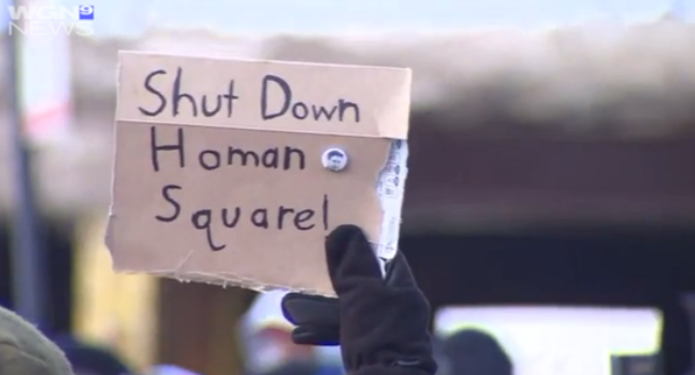 WGN 9
NEWS
Shut Down
Homan
Square!